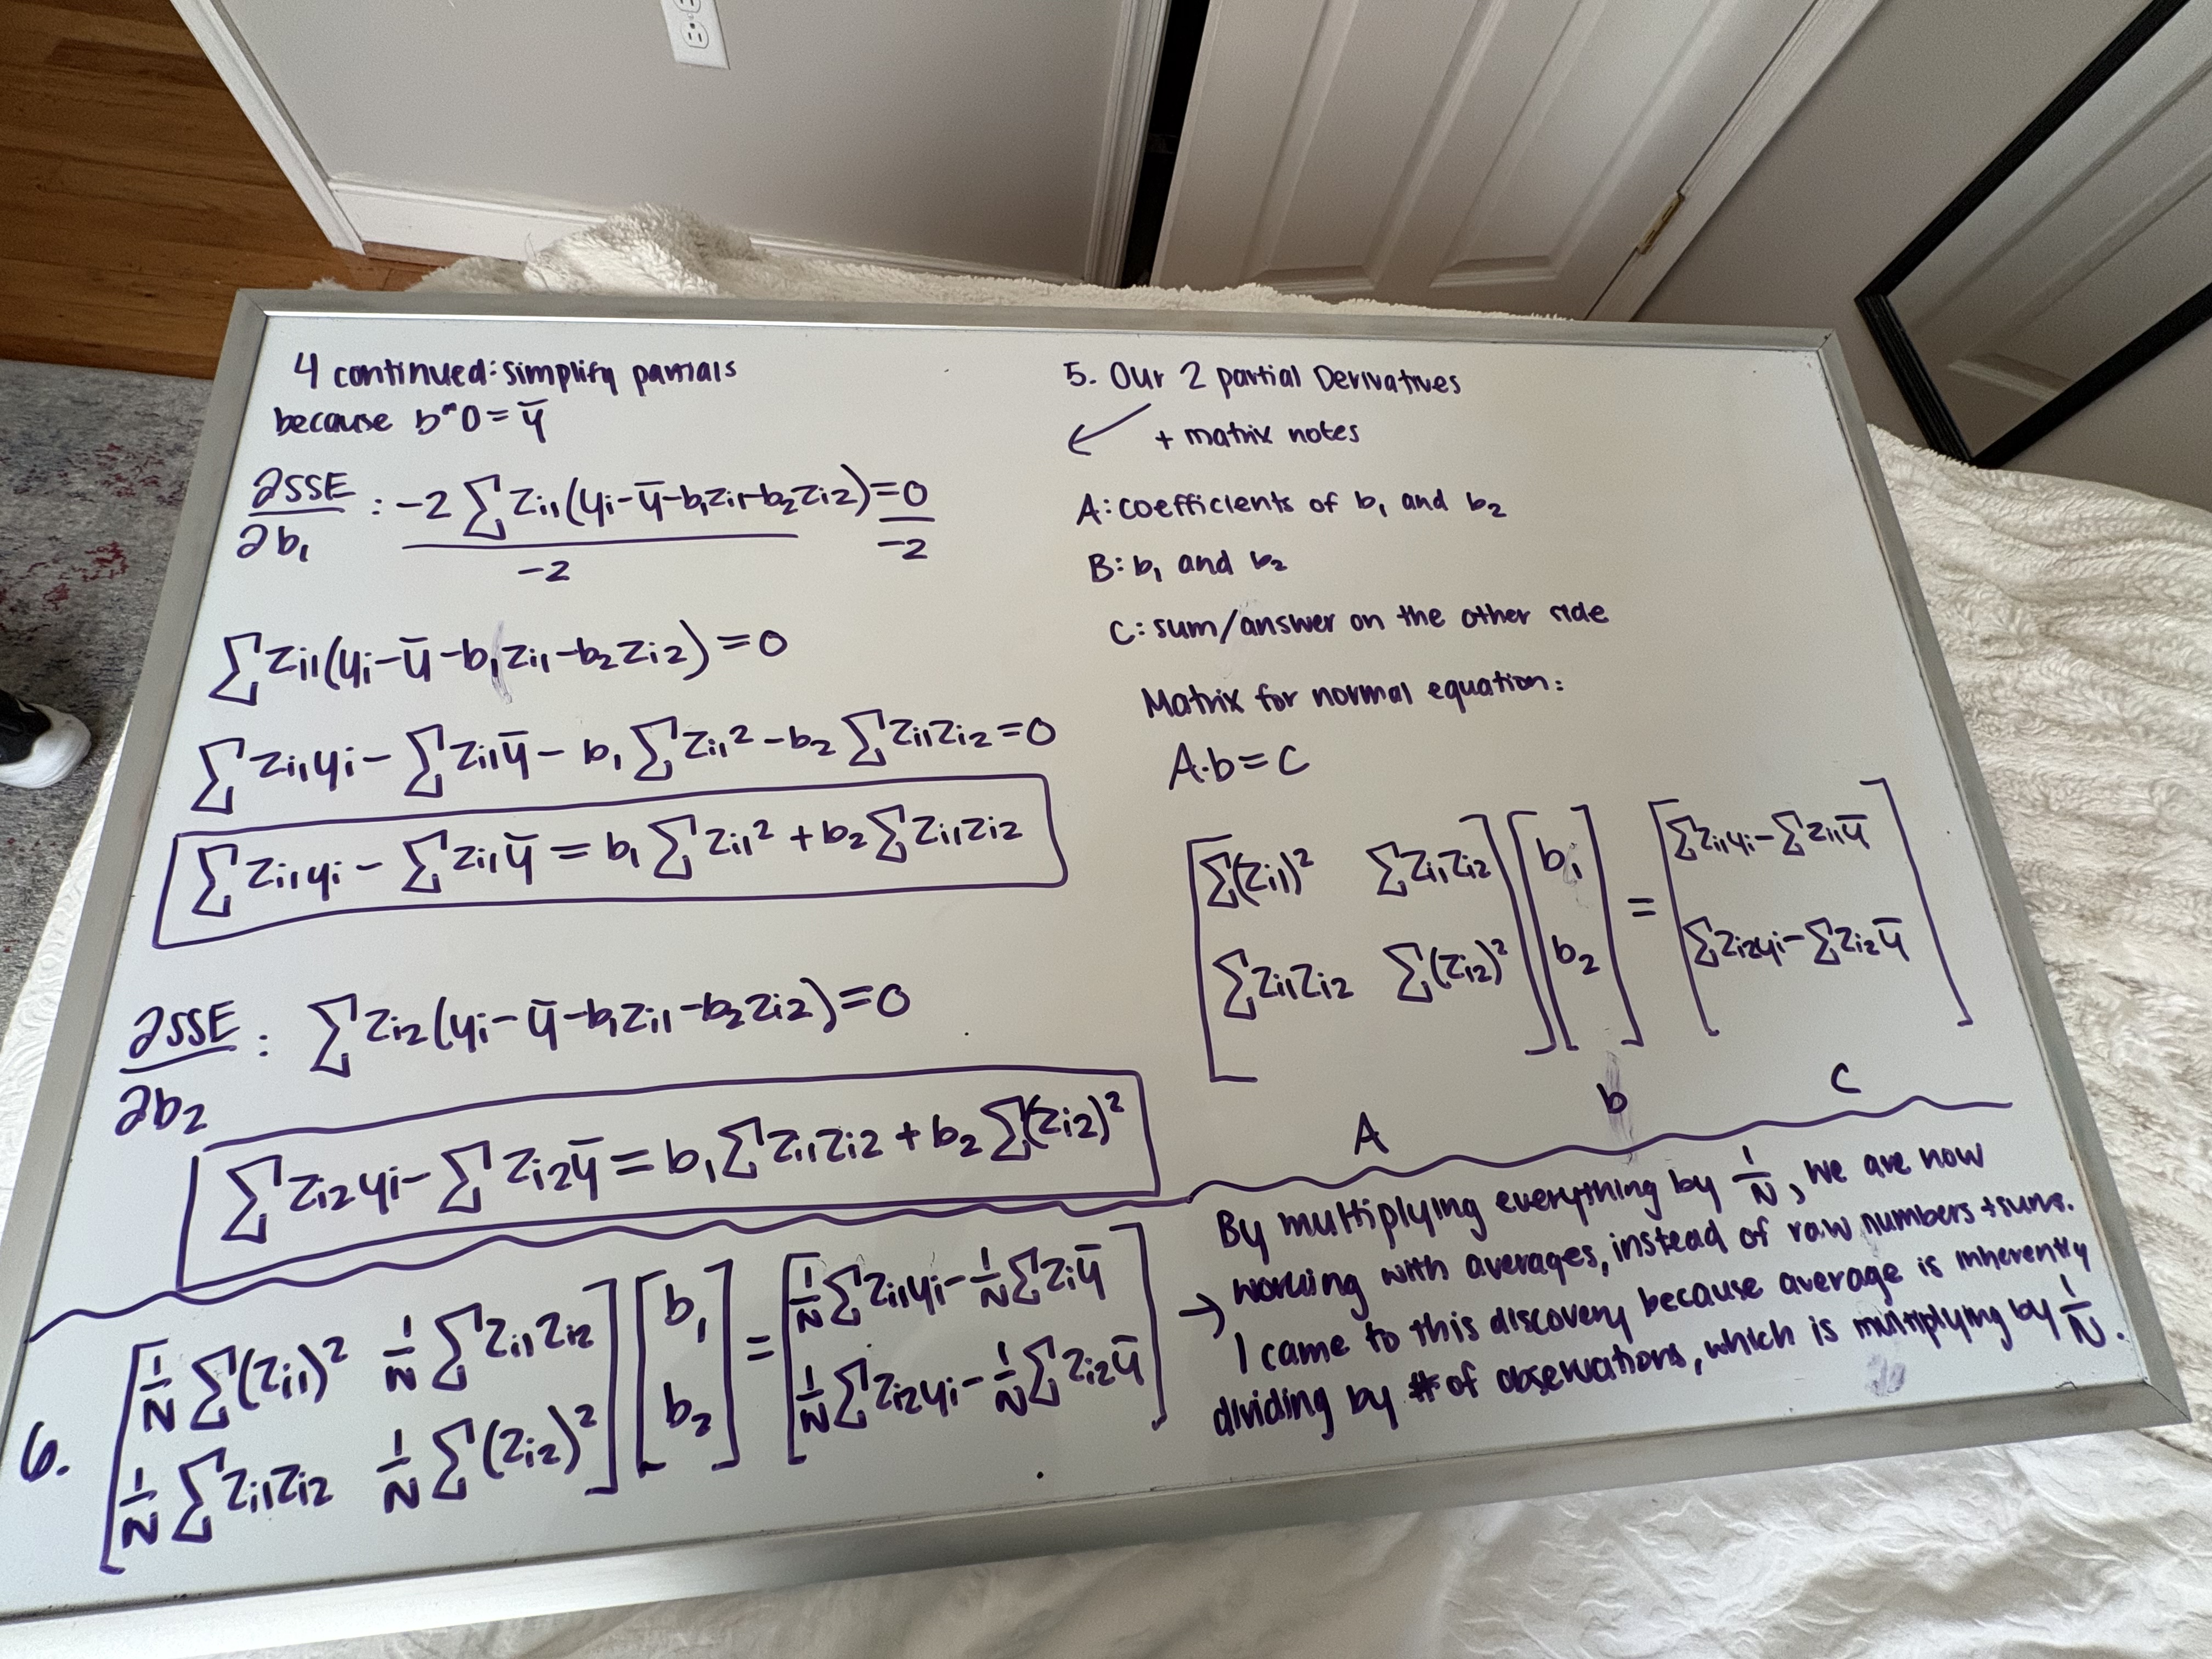 4 continued: simplify partials
because b*0 = ȳ
∂SSE/∂b₁ : -2 ∑ zᵢ₁(yᵢ - ȳ - b₁zᵢ₁ - b₂zᵢ₂) = 0
-2 -2
∑ zᵢ₁(yᵢ - ȳ - b₁zᵢ₁ - b₂zᵢ₂) = 0
∑ zᵢ₁yᵢ - ∑ zᵢ₁ȳ - b₁ ∑ zᵢ₁² - b₂ ∑ zᵢ₁zᵢ₂ = 0
∑ zᵢ₁yᵢ - ∑ zᵢ₁ȳ = b₁ ∑ zᵢ₁² + b₂ ∑ zᵢ₁zᵢ₂
∂SSE/∂b₂ : ∑ zᵢ₂(yᵢ - ȳ - b₁zᵢ₁ - b₂zᵢ₂) = 0
∑ zᵢ₂yᵢ - ∑ zᵢ₂ȳ = b₁ ∑ zᵢ₁zᵢ₂ + b₂ ∑(zᵢ₂)²
5. Our 2 partial Derivatives
+ matrix notes
A: coefficients of b₁ and b₂
B: b₁ and b₂
C: sum/answer on the other side
Matrix for normal equation:
A·b = C
[∑(zᵢ₁)² ∑ zᵢ₁zᵢ₂] [b₁] = [∑zᵢ₁yᵢ - ∑zᵢ₁ȳ]
[∑ zᵢ₁zᵢ₂ ∑(zᵢ₂)²] [b₂] [∑zᵢ₂yᵢ - ∑zᵢ₂ȳ]
A b C
6.
[1/N ∑(zᵢ₁)² 1/N ∑ zᵢ₁zᵢ₂] [b₁] = [1/N ∑zᵢ₁yᵢ - 1/N ∑zᵢȳ]
[1/N ∑ zᵢ₁zᵢ₂ 1/N ∑(zᵢ₂)²] [b₂] [1/N ∑zᵢ₂yᵢ - 1/N ∑zᵢ₂ȳ]
By multiplying everything by 1/N, we are now
→ working with averages, instead of raw numbers + sums.
I came to this discovery because average is inherently
dividing by # of observations, which is multiplying by 1/N.